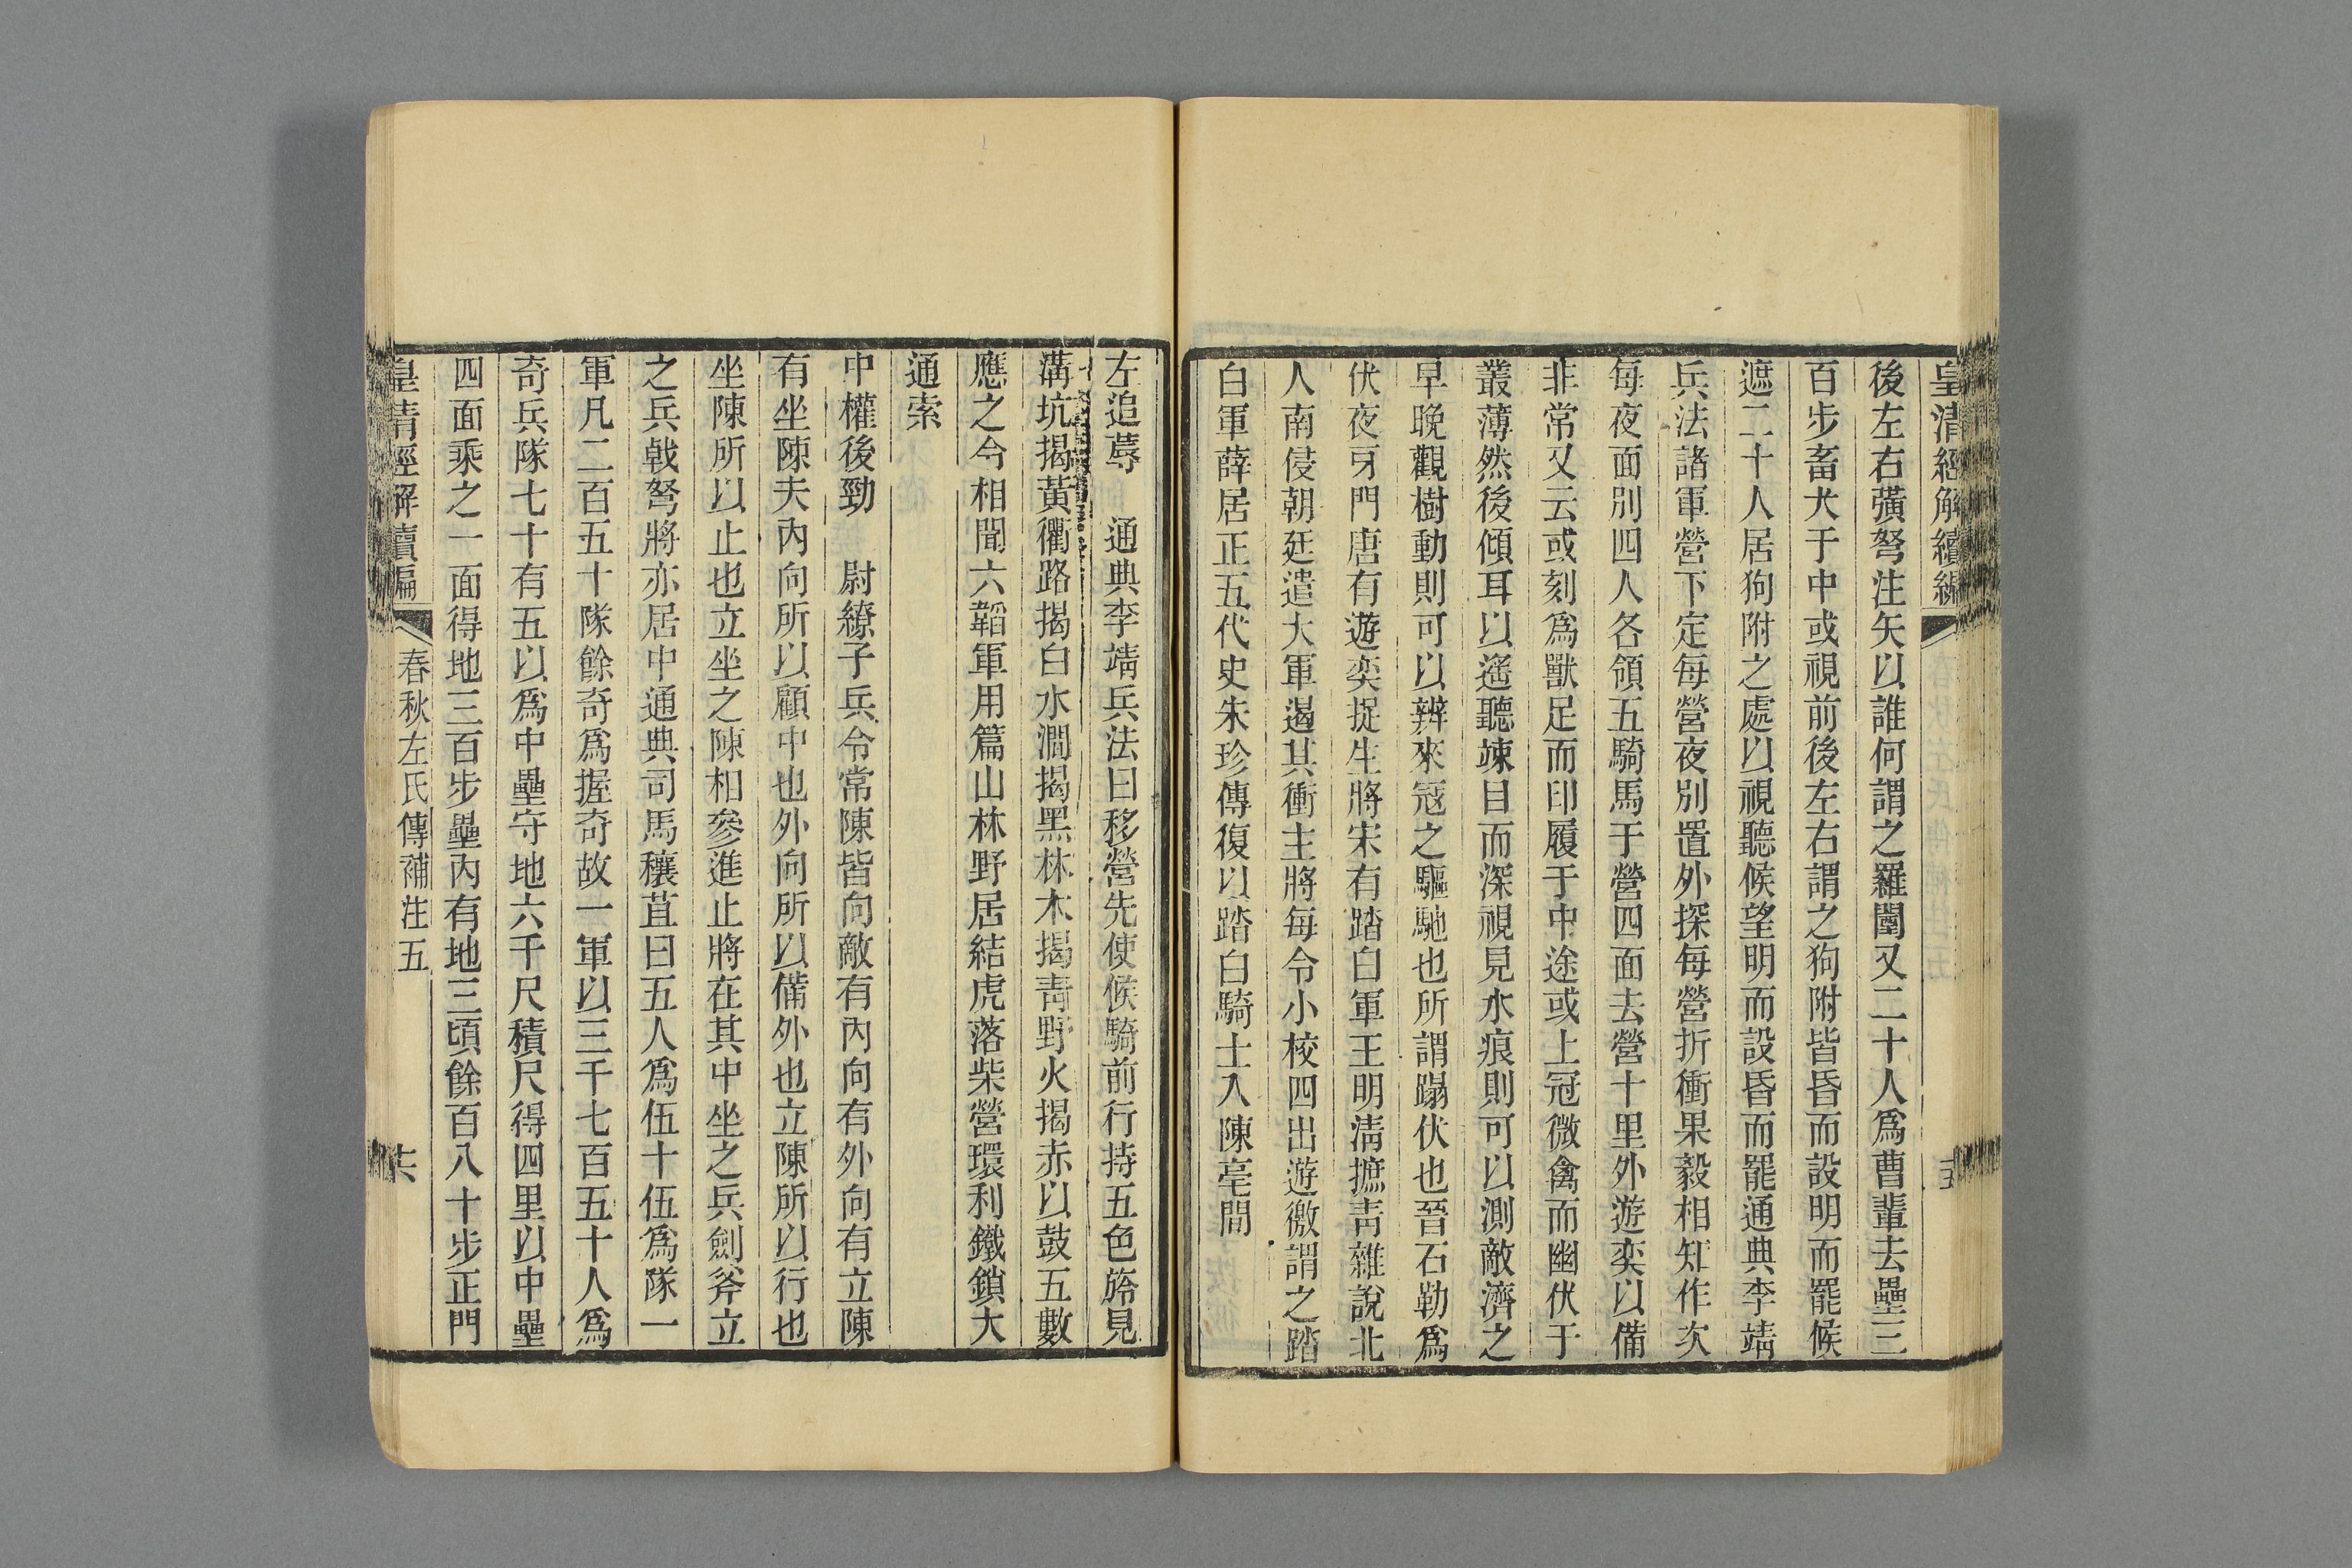 皇清經解續編
後左右彍弩注矢以誰何謂之羅闉又二十人爲曹輩去壘三
百步畜犬于中或視前後左右謂之狗附皆昏而設明而罷候
遮二十人居狗附之處以視聽候望明而設昏而罷通典李靖
兵法諸軍營下定每營夜別置外探每營折衝果毅相知作次
每夜面別四人各領五騎馬于營四面去營十里外遊奕以備
非常又云或刻爲獸足而印履于中途或上冠微禽而幽伏于
叢薄然後傾耳以遙聽竦目而深視見水痕則可以測敵濟之
早晚觀樹動則可以辨來寇之驅馳也所謂蹋伏也晉石勒爲
伏夜牙門唐有遊奕捉生將宋有踏白軍王明淸摭靑雜說北
人南侵朝廷遣大軍遏其衝主將每令小校四出遊徼謂之踏
白軍薛居正五代史朱珍傳復以踏白騎士入陳亳間
左追蓐　通典李靖兵法曰移營先使候騎前行持五色旍見
溝坑揭黃衢路揭白水澗揭黑林木揭靑野火揭赤以鼓五數
應之令相聞六韜軍用篇山林野居結虎落柴營環利鐵鎖大
通索
中權後勁　尉繚子兵令常陳皆向敵有內向有外向有立陳
有坐陳夫內向所以顧中也外向所以備外也立陳所以行也
坐陳所以止也立坐之陳相參進止將在其中坐之兵劍斧立
之兵戟弩將亦居中通典司馬穰苴曰五人爲伍十伍爲隊一
軍凡二百五十隊餘奇爲握奇故一軍以三千七百五十人爲
奇兵隊七十有五以爲中壘守地六千尺積尺得四里以中壘
四面乘之一面得地三百步壘內有地三頃餘百八十步正門
皇淸經解續編
春秋左氏傳補注五